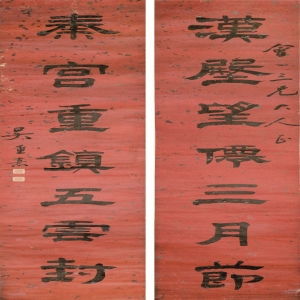 漢望僊三月節
三兄大人正
秦宮重鎮五雲封
吳重憙